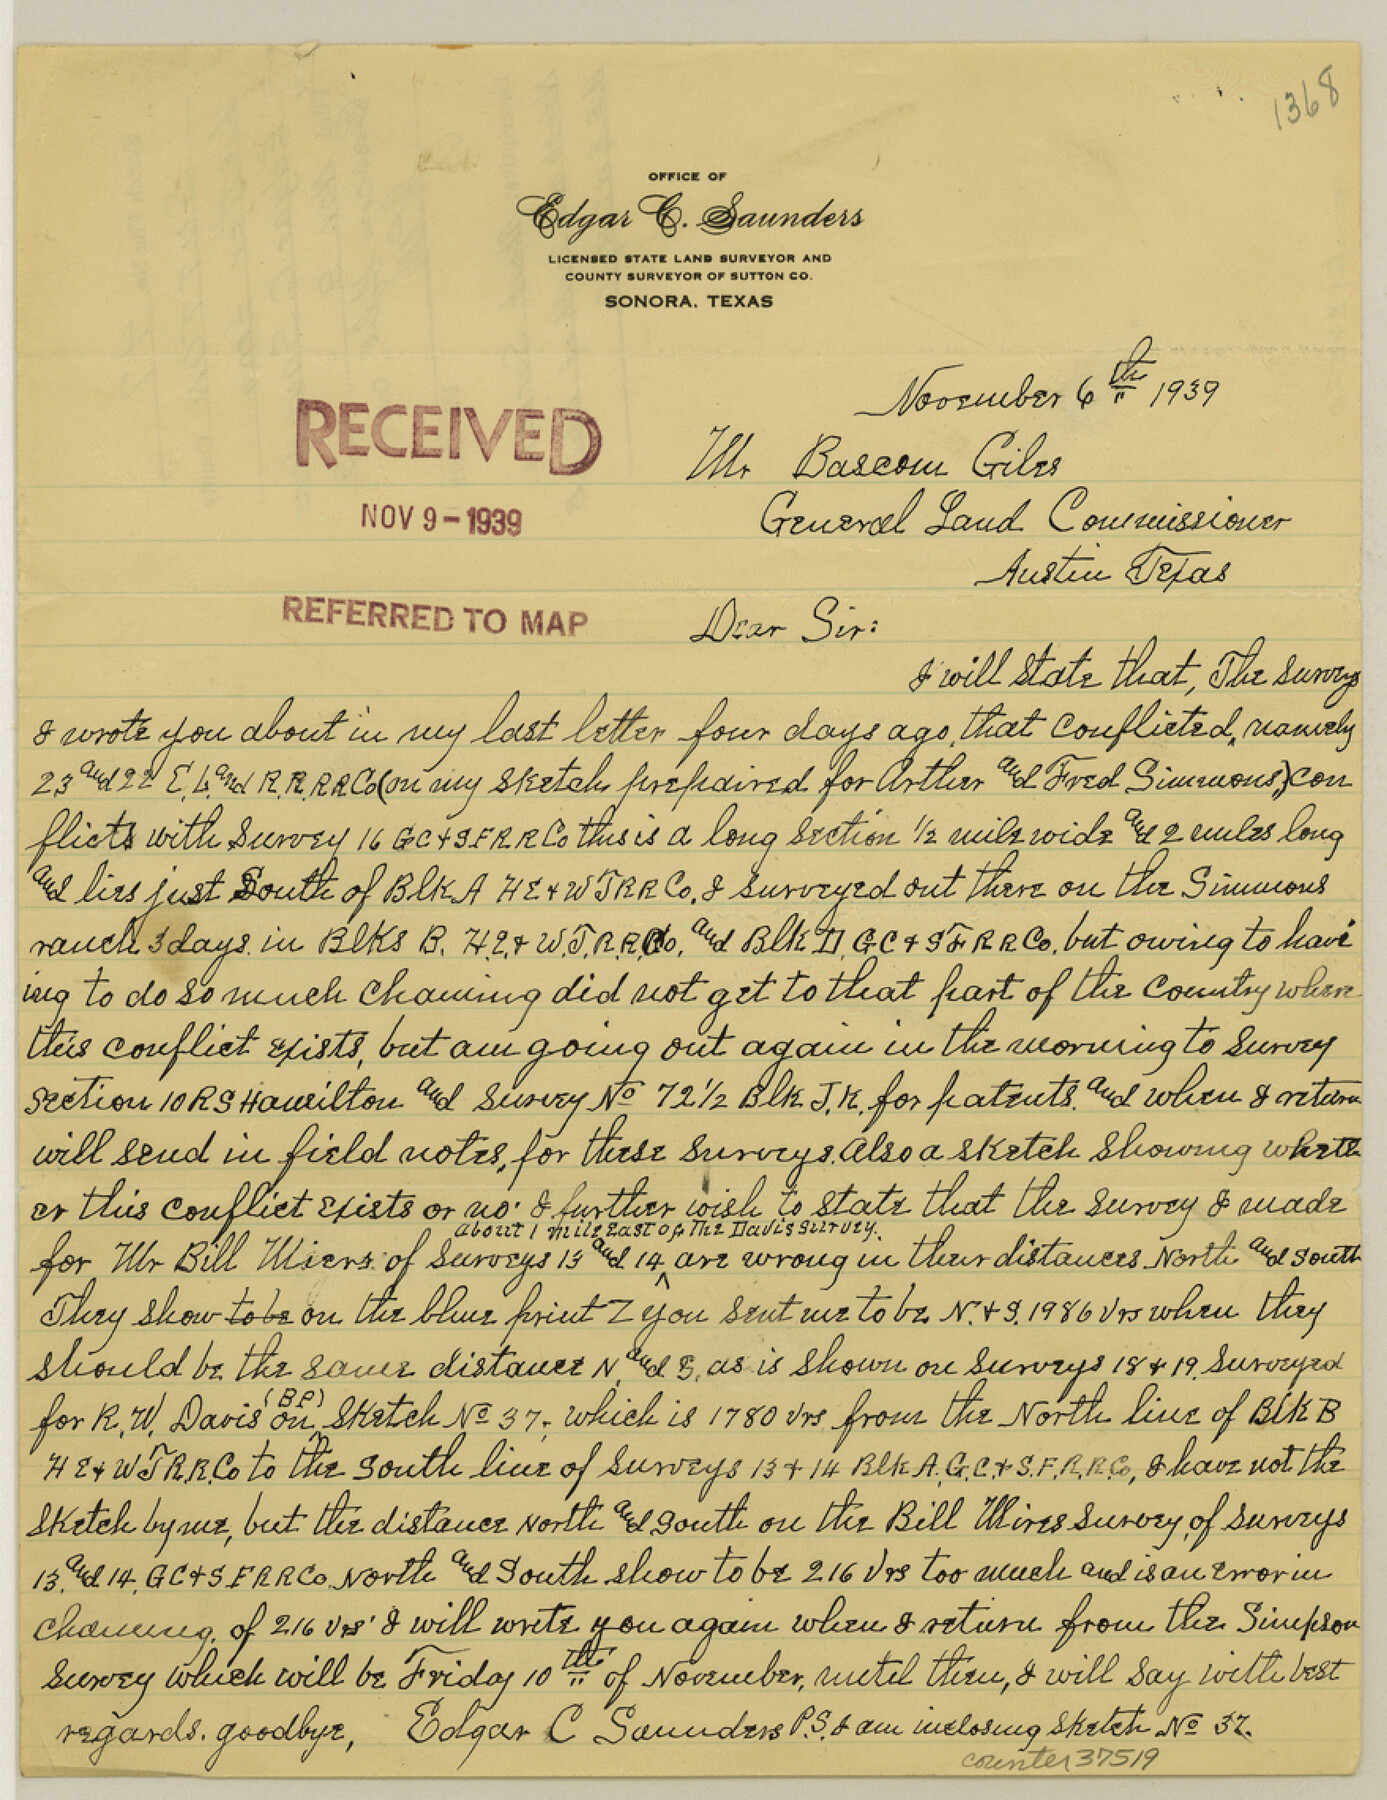 1368
OFFICE OF
Edgar C. Saunders
LICENSED STATE LAND SURVEYOR AND
COUNTY SURVEYOR OF SUTTON CO.
SONORA, TEXAS
November 6th 1939
RECEIVED
Mr Bascom Giles
NOV 9 - 1939
General Land Commissioner
Austin Texas
REFERRED TO MAP
Dear Sir:
I will state that, The Surveys
I wrote you about in my last letter four days ago, that conflicted, namely
23 and 22 E. L. and R.R. RR Co (on my sketch prepaired for Arther and Fred Simmons,) con
flicts with Survey 16 GC & SF RR Co this is a long section 1/2 mile wide and 2 miles long
and lies just South of Blk A HE & WT RR Co. I surveyed out there on the Simmons
ranch 3 days in Blks B. H.E. & W.T. R.R. Co. and Blk D, GC & SF RR Co. but owing to hav
ing to do so much chaining did not get to that part of the country where
this conflict exists, but am going out again in the morning to Survey
Section 10 RS Hamilton and Survey No 72 1/2 Blk J.K. for patents. and when I return
will send in field notes, for these surveys. Also a sketch showing wheth
er this conflict exists or no. I further wish to state that the survey I made
about 1 mile East of The Davis survey.
for Mr Bill Miers of Surveys 13 and 14 are wrong in their distances North and South
They show to be on the blue print I you sent me to be N. & S. 1986 vrs when they
should be the same distance N. and S. as is shown on Surveys 18 & 19. Surveyed
for R. W. Davis (BP) on Sketch No 37, which is 1780 vrs from the North line of Blk B
HE & WT R.R. Co to the South line of Surveys 13 & 14 Blk A. G.C. & S.F. R.R. Co, I have not the
Sketch by me, but the distance North and South on the Bill Mires Survey, of Surveys
13 and 14, GC & S.F RR Co. North and South show to be 216 vrs too much and is an error in
chaining. of 216 vrs. I will write you again when I return from the Simpson
Survey which will be Friday 10th of November, until then, I will say with best
regards. goodbye, Edgar C Saunders P.S. I am inclosing Sketch No 37.
counter 37519